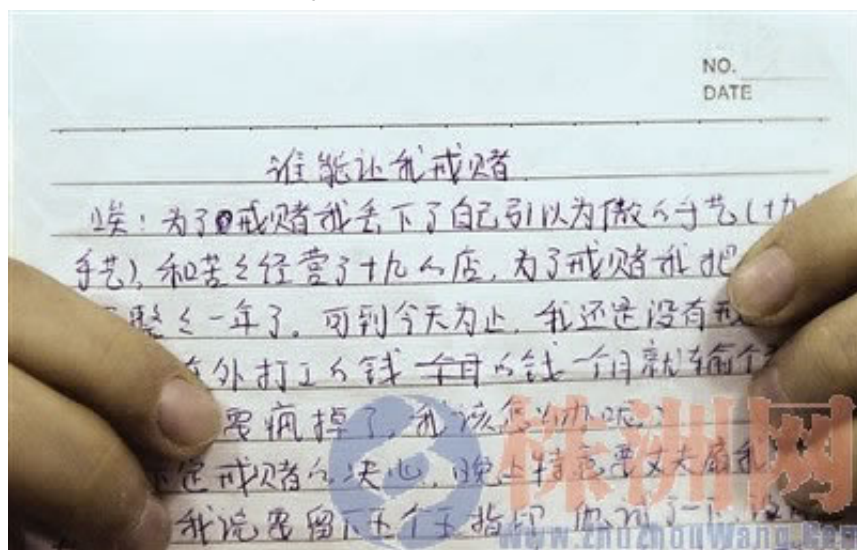 NO.
DATE
谁能让我戒赌
唉!为了戒赌我丢下了自己引以为傲的手艺(十九
手艺),和苦々经营了十九的店,为了戒赌我把
整々一年了。可到今天为止,我还是没有戒
在外打工的钱 个月的钱一个月就输个
要疯掉了,我该怎么办呢?
下定戒赌的决心,晚上特意要丈夫扇我
我说要留下五个手指印
株洲网
www.ZhuZhouWang.Com